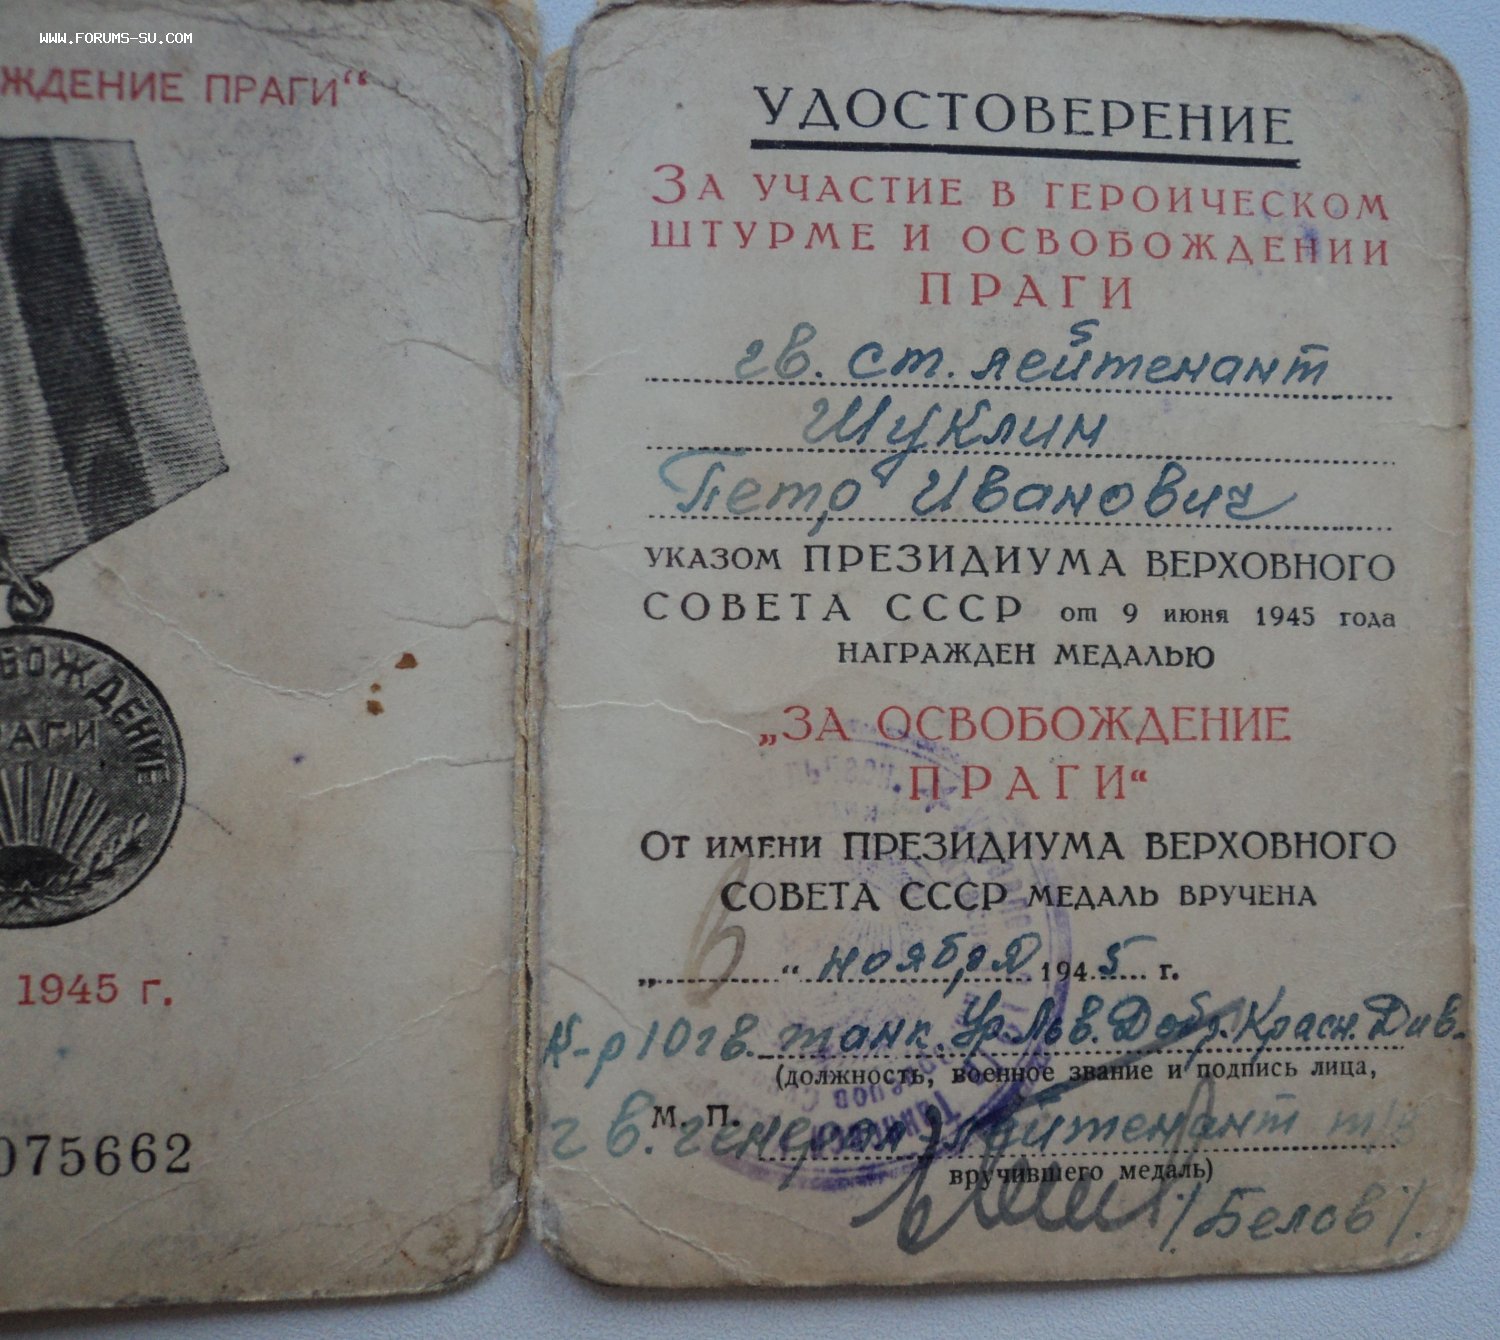 WWW.FORUMS-SU.COM
ЖДЕНИЕ ПРАГИ“
БОЖДЕНИЕ
РАГИ
1945 г.
075662
УДОСТОВЕРЕНИЕ
ЗА УЧАСТИЕ В ГЕРОИЧЕСКОМ
ШТУРМЕ И ОСВОБОЖДЕНИИ
ПРАГИ
гв. ст. лейтенант
Шуклин
Петр Иванович
УКАЗОМ ПРЕЗИДИУМА ВЕРХОВНОГО
СОВЕТА СССР от 9 июня 1945 года
НАГРАЖДЕН МЕДАЛЬЮ
„ЗА ОСВОБОЖДЕНИЕ
ПРАГИ“
ОТ ИМЕНИ ПРЕЗИДИУМА ВЕРХОВНОГО
СОВЕТА СССР МЕДАЛЬ ВРУЧЕНА
„ “ ноября 1945 г.
К-р 10 гв. танк. Ур. Льв. Добр. Красн. Див.
(должность, военное звание и подпись лица,
М. П.
гв. генерал лейтенант т/в
вручившего медаль)
/Белов/